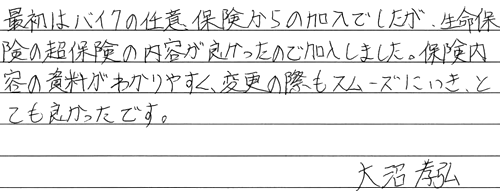 最初はバイクの任意保険からの加入でしたが、生命保
険の超保険の内容が良かったので加入しました。保険内
容の資料がわかりやすく、変更の際もスムーズにいき、と
ても良かったです。
大沼孝弘